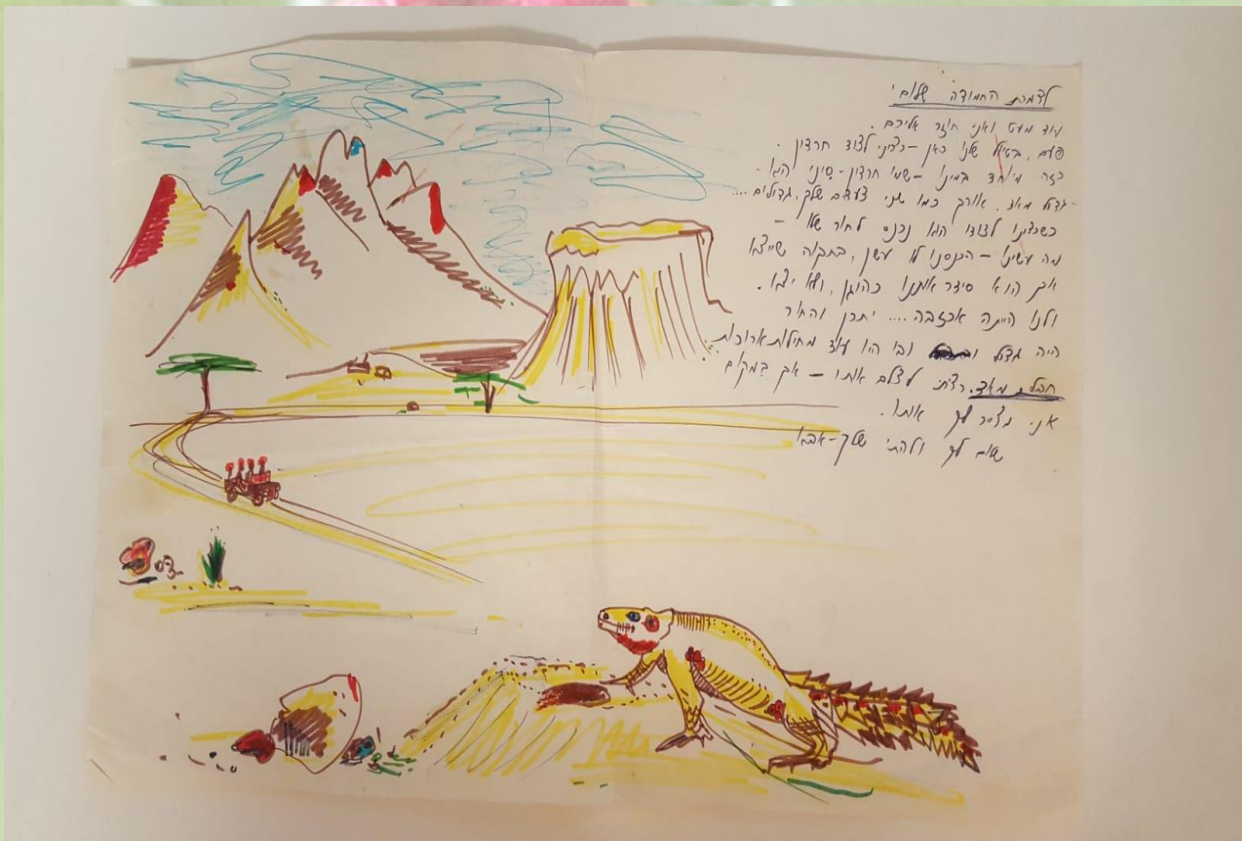 לצמרת החמודה שלום!
עוד מעט ואני חוזר אליכם.
פעם, בטיול שלנו כאן – רצינו לצוד חרדון.
כזה מיוחד במינו – שמו חרדון-סיני הוא
גדול מאד. אורך כמו שני צעדים שלך, גדולים....
כשרצינו לצודו הוא נכנס לחור שלו –
מה עשינו – הכנסנו לו עשן, בתקוה שייצא
אך הוא סידר אותנו כהוגן, ולא יצא.
ולנו הייתה אכזבה.... יתכן והחור
היה גדול ובו היו עוד מחילות ארוכות
חבל מאד. רציתי לצלם אותו – אך במקום
אני מצייר לך אותו.
שלום לך ולהת' שלך-אבא